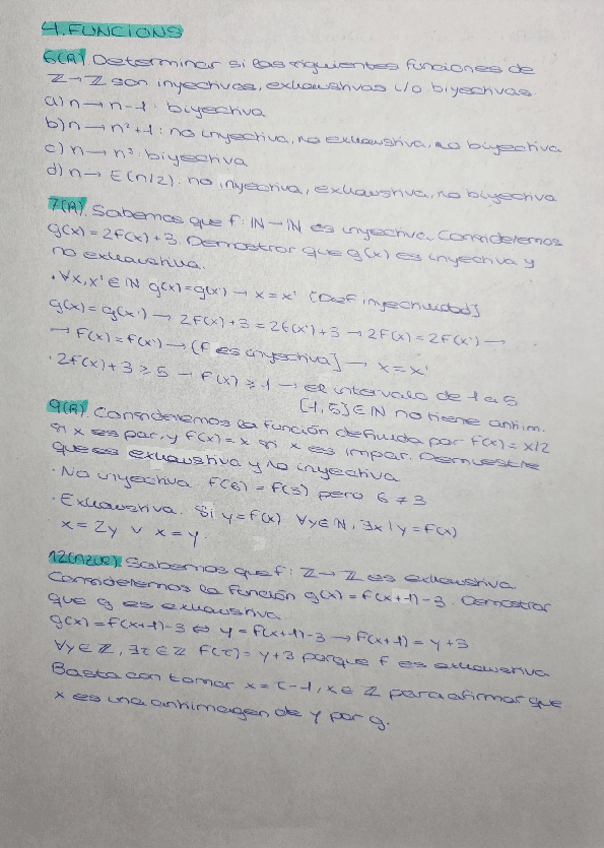 4. FUNCIONS
6(A). Determinar si las siguientes funciones de
Z→Z son inyectivas, exhaustivas i/o biyectivas.
a) n → n-1: biyectiva
b) n → n²+1: no inyectiva, no exhaustiva, no biyectiva
c) n → n³: biyectiva
d) n → E(n/2): no inyectiva, exhaustiva, no biyectiva
7(A). Sabemos que f: ℕ→ℕ es inyectiva. Consideremos
g(x) = 2f(x)+3. Demostrar que g(x) es inyectiva y
no exhaustiva.
· ∀x,x' ∈ ℕ g(x)=g(x') → x=x' [Def inyectividad]
g(x)=g(x') → 2f(x)+3=2f(x')+3 → 2f(x)=2f(x') →
→ f(x)=f(x') → [f es inyectiva] → x=x'
· 2f(x)+3 ≥ 5 → f(x) ≥ 1 → el intervalo de 1 a 5
[1,5] ∈ ℕ no tiene antim.
9(A). Consideremos la función definida por f(x)=x/2
si x es par, y f(x)=x si x es impar. Demuestre
que es exhaustiva y no inyectiva
· No inyectiva. f(6)=f(3) pero 6≠3
· Exhaustiva. Si y=f(x) ∀y∈ℕ, ∃x | y=f(x)
x=2y v x=y.
12(Azul). Sabemos que f: Z→Z es exhaustiva.
Consideremos la función g(x)=f(x+1)-3. Demostrar
que g es exhaustiva.
g(x)=f(x+1)-3 ⇔ y=f(x+1)-3 → f(x+1)=y+3
∀y∈Z, ∃τ∈Z f(τ)=y+3 porque f es exhaustiva
Basta con tomar x=τ-1, x∈Z para afirmar que
x es una antimagen de y por g.